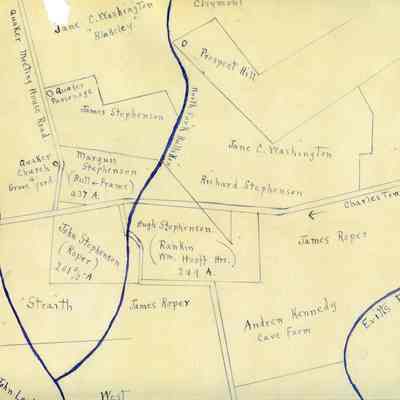 Claymont
Jane C. Washington
"Blakeley"
Quaker Meeting House Road
Prospect Hill
Quaker
Parsonage
James Stephenson
North Fork Bullskin
Jane C. Washington
Quaker
Church
Grave yard
Marquis
Stephenson
(Bull - Frame)
237 A.
Richard Stephenson
Charles Town
Hugh Stephenson
(Rankin
Wm. Hooff Hrs.)
241 A.
John Stephenson
(Roper)
James Roper
Straith
James Roper
Andrew Kennedy
Cave Farm
Evitts
West
John